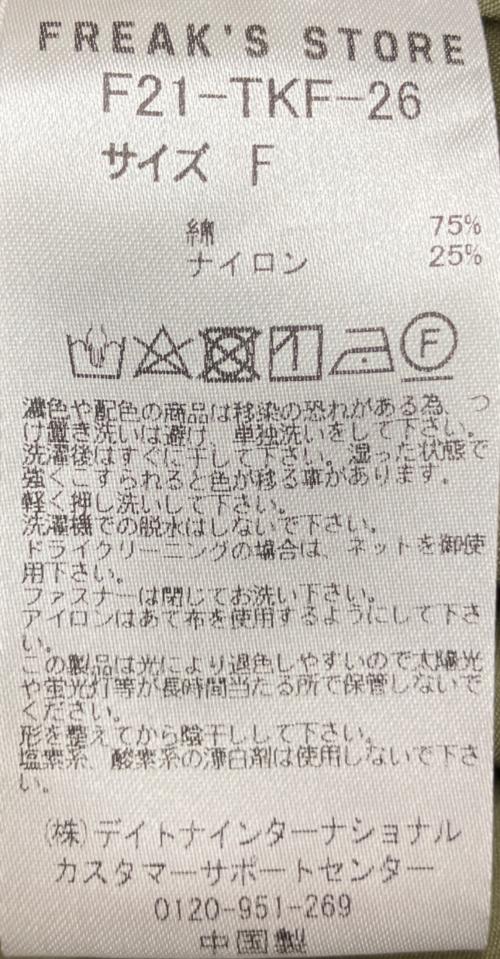 FREAK'S STORE
F21-TKF-26
サイズ F
綿 75%
ナイロン 25%
F
濃色や配色の商品は移染の恐れがある為、つ
け置き洗いは避け、単独洗いをして下さい。
洗濯後はすぐに干して下さい。湿った状態で
強くこすられると色が移る事があります。
軽く押し洗いして下さい。
洗濯機での脱水はしないで下さい。
ドライクリーニングの場合は、ネットを御使
用下さい。
ファスナーは閉じてお洗い下さい。
アイロンはあて布を使用するようにして下さ
い。
この製品は光により退色しやすいので太陽光
や蛍光灯等が長時間当たる所で保管しないで
ください。
形を整えてから陰干しして下さい。
塩素系、酸素系の漂白剤は使用しないで下さ
い。
(株)デイトナインターナショナル
カスタマーサポートセンター
0120-951-269
中国製